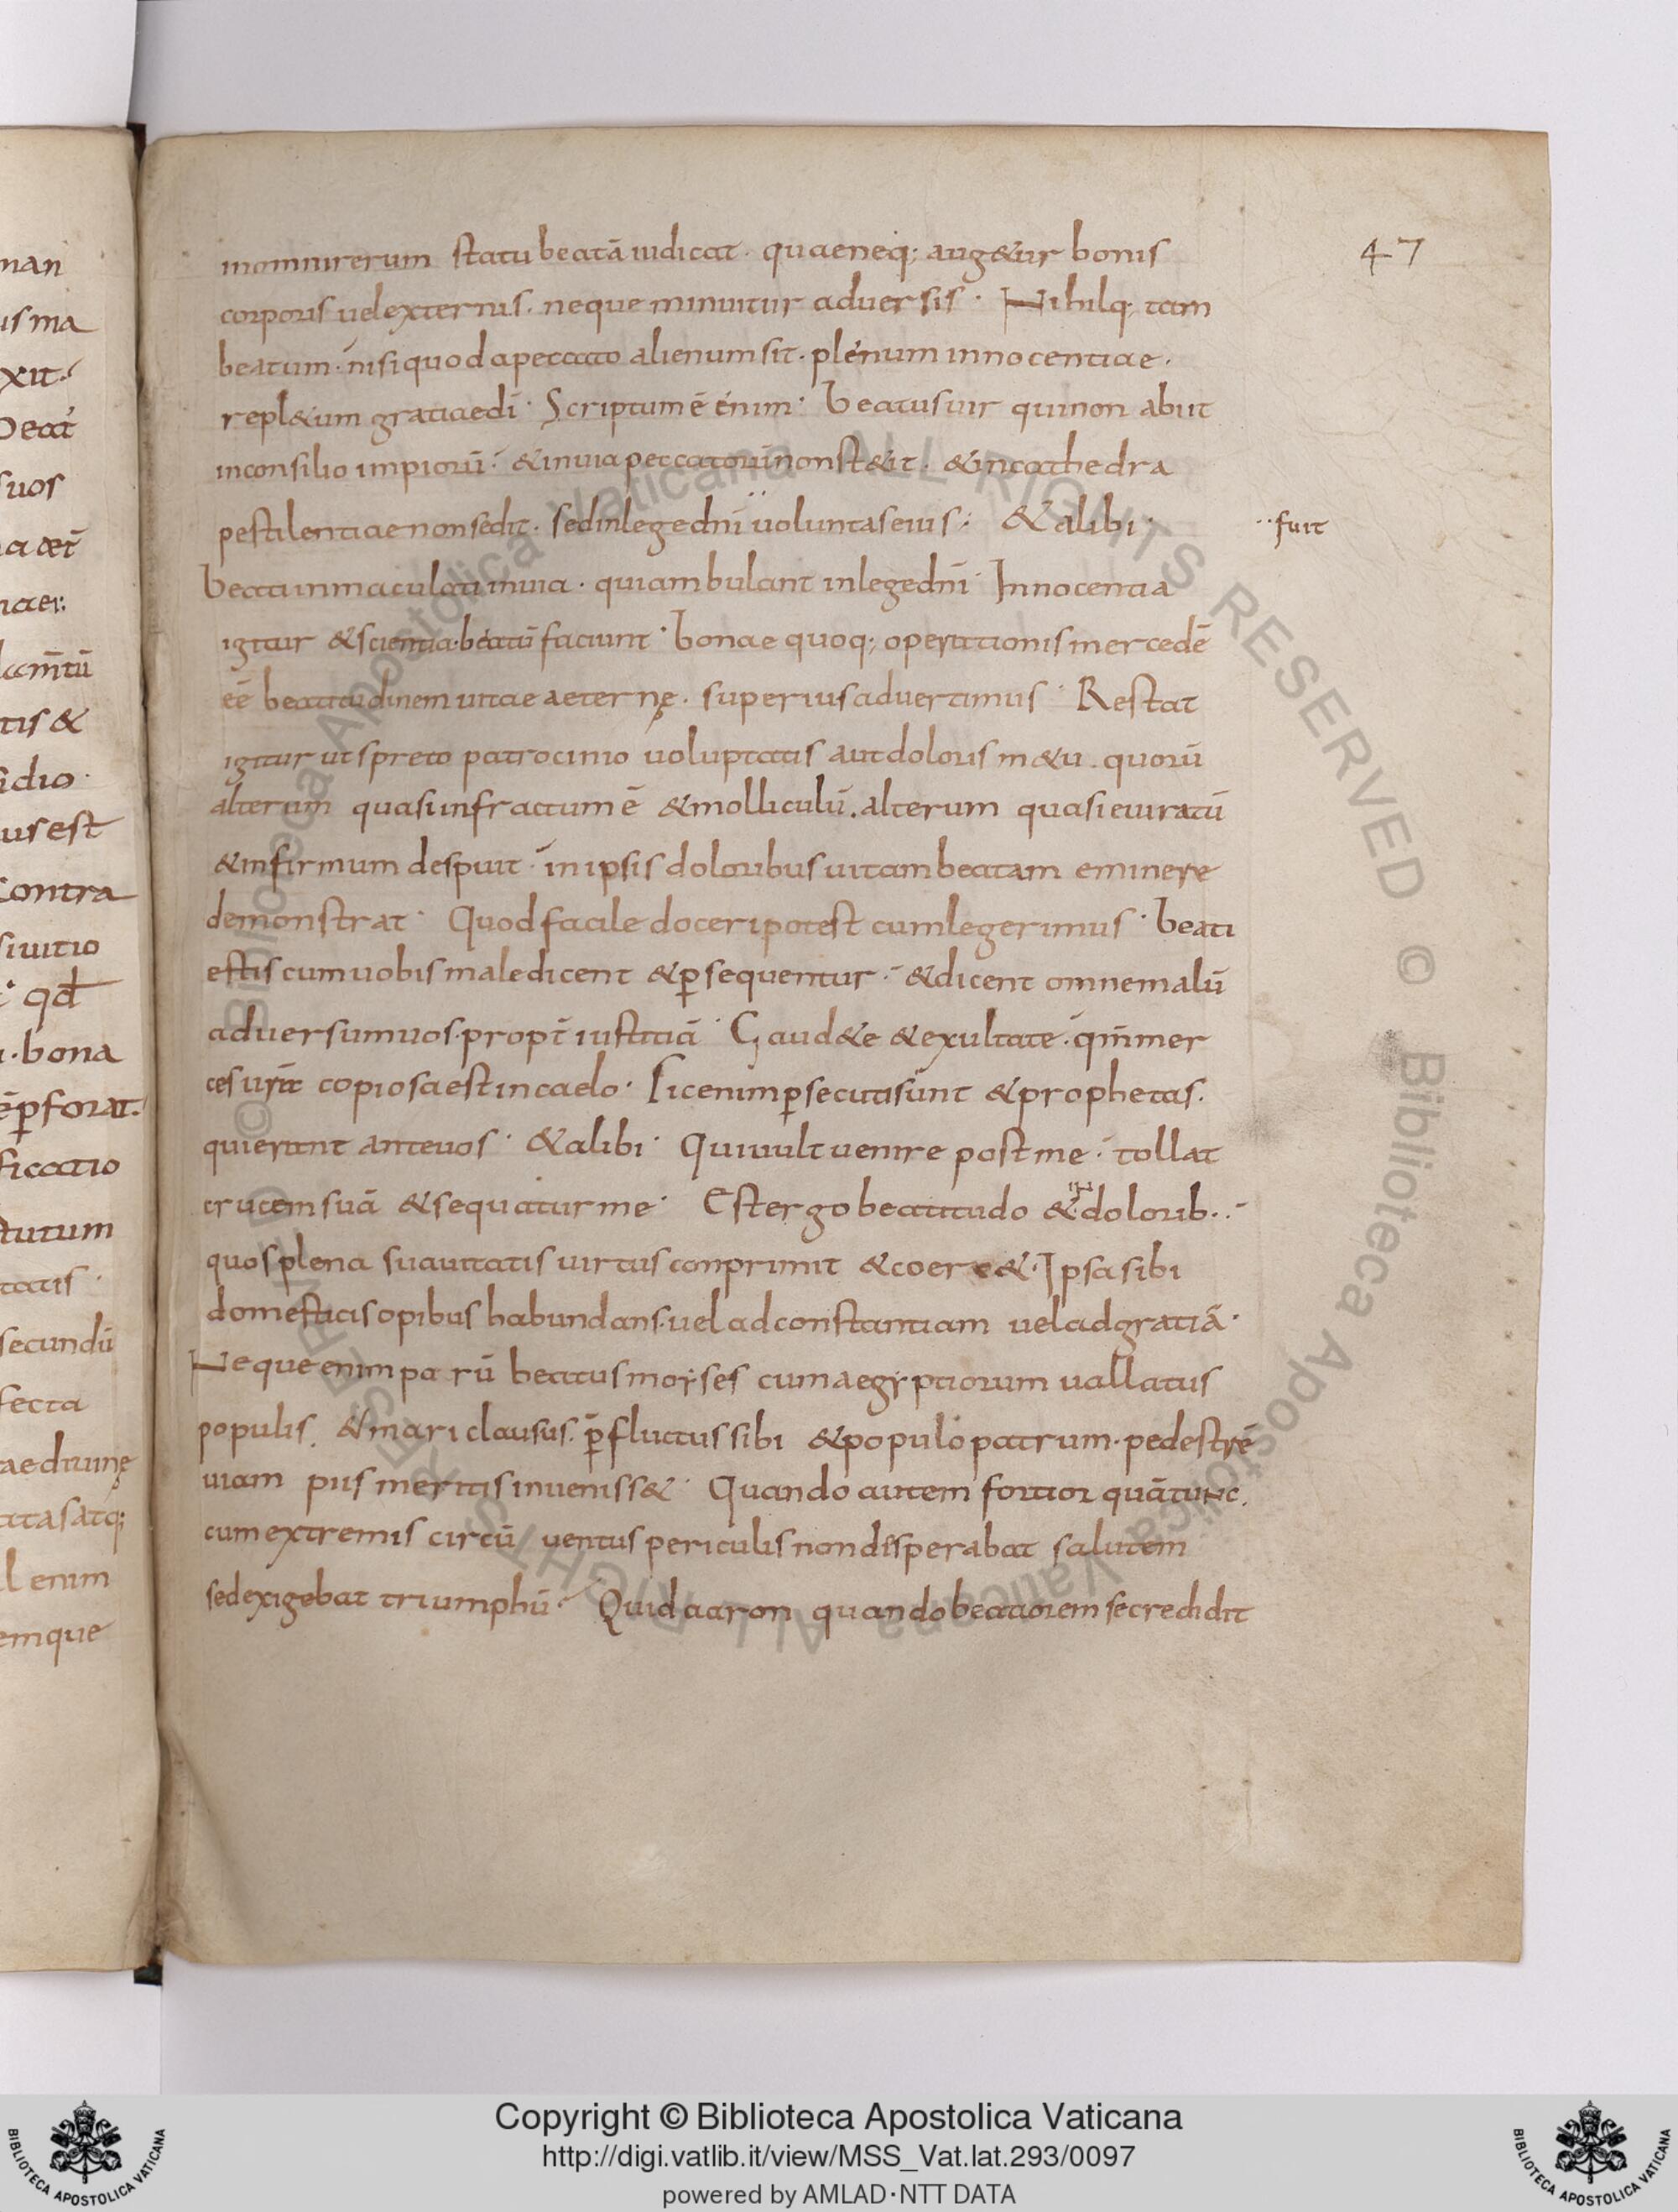 inomnirerum statu beatā iudicat · quaeneq; aug&ur bonis
47
corporis uelexternis. neque minuitur aduersis · Nihilq; tam
beatum · nisi quod apeccato alienum sit · plenum innocentiae ·
repl&um gratiaedī · Scriptum ē enim · beatusuir quinon abiit
inconsilio impiorū · &inuia peccatorū nonst&it · &incathedra
pestilentiae nonsedit · sedinlegednī uoluntaseius · &alibi ·
fuit
beatiinmaculatiinuia · quiambulant inlegednī · Innocentia
igitur &scientia beatū faciunt · bonae quoq; operationis mercedē
eē beatitudinem uitae aeternę · superius aduertimus · Restat
igitur ut spreto patrocinio uoluptatis aut doloris m&u · quorū
alterum quasi infractum ē &molliculū · alterum quasi euiratū
&infirmum despuit · in ipsis doloribus uitam beatam eminere
demonstrat · Quod facile doceri potest cumlegerimus · beati
estis cum uobis maledicent &p̄sequentur · &dicent omnemalū
aduersumuos · propt̄ iustitiā · Gaud&e &exultate · qm̄mer
ces copiosaestincaelo · Sicenimp̄secutisunt &prophetas ·
quierant anteuos · &alibi · Quiuult uenire post me · tollat
crucem suā &sequatur me · Est ergo beatitudo & dolorib.
quos plena suauitatis uirtus conprimit &coerce& · Ipsa sibi
domesticis opibus habundans · uel adconstantiam uel adgratiā ·
Neque enim parū beatus moyses cum aegyptiorum uallatus
populis &mari clausus · p̄fluctus sibi &populo patrum · pedestrē
uiam piis meritis inueniss& · Quando autem fortior quātunc ·
cum extremis circū uentus periculis non disperabat salutem
sed exigebat triumphū · Quid aaron quando beatiorem se credidit
Copyright © Biblioteca Apostolica Vaticana
http://digi.vatlib.it/view/MSS_Vat.lat.293/0097
powered by AMLAD·NTT DATA